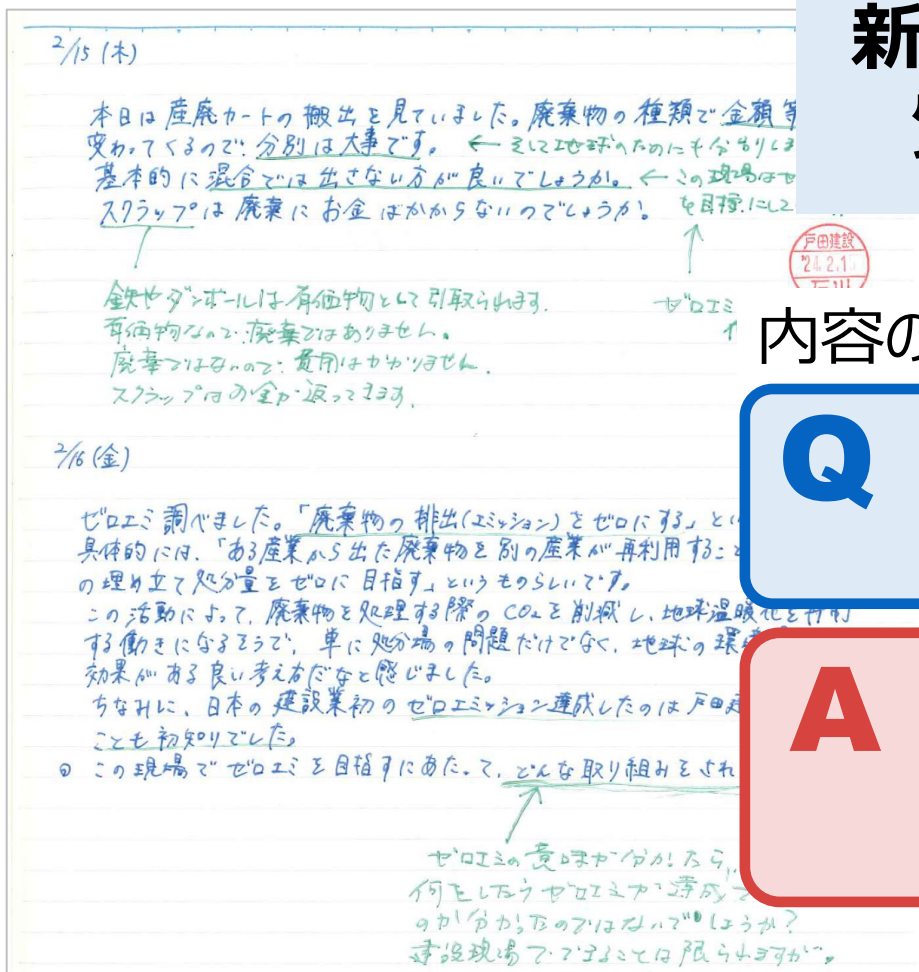 2/15 (木)
本日は産廃カートの搬出を見ていました。廃棄物の種類で金額等
変わってくるので、分別は大事です。 ← そして地球のためにも分別しま
基本的に混合では出さない方が良いでしょうか。 ← この現場はゼ
スクラップは廃棄にお金はかからないのでしょうか。 を目標にして
戸田建設
'24.2.1
石川
鉄やダンボールは有価物として引取られます。
有価物なので廃棄ではありません。
廃棄ではないので、費用はかかりません。
スクラップはお金が返ってきます。
ゼロエミ
2/16 (金)
ゼロエミ調べました。「廃棄物の排出(エミッション)をゼロにする」とい
具体的には、「ある産業から出た廃棄物を別の産業が再利用するこ
の埋め立て処分量をゼロに目指す」というものらしいです。
この活動によって、廃棄物を処理する際のCO2を削減し、地球温暖化を
する働きになるそうで、単に処分場の問題だけでなく、地球の環
効果がある良い考え方だなと感じました。
ちなみに、日本の建設業初のゼロエミッション達成したのは戸田建
ことも初知りでした。
◎ この現場でゼロエミを目指すにあたって、どんな取り組みをされ
ゼロエミの意味が分かったら、
何をしたらゼロエミが達成
のか分かったのではないでしょうか?
建設現場でできることは限られますが、
新
内容の
Q
A